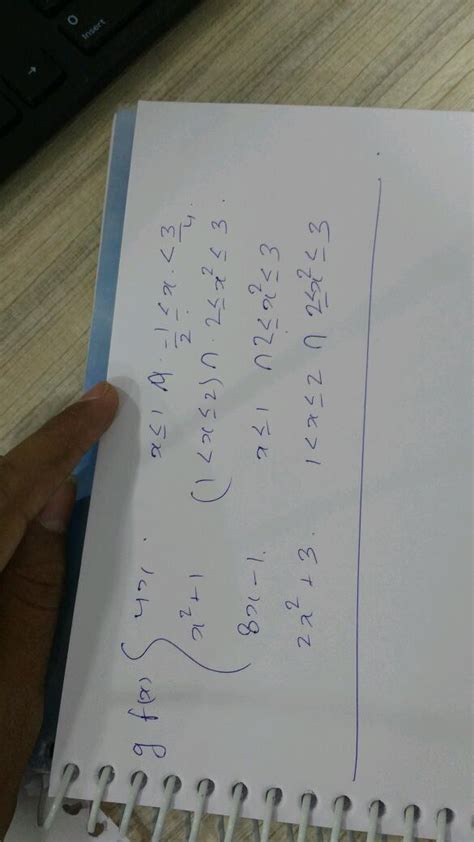 0
Insert
→
g f(x) { 4x. x ≤ 1 ∩ . -1/2 ≤ x . < 3/4.
x² + 1 (1 < x ≤ 2) ∩ . 2 ≤ x² ≤ 3 .
8x - 1. x ≤ 1 ∩ 2 ≤ x² ≤ 3
2x² + 3. 1 < x ≤ 2 ∩ 2 ≤ x² ≤ 3